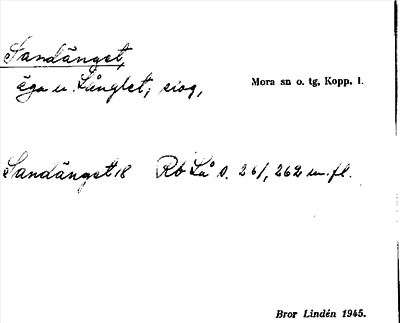 Sandänget,
äga u. Långlet; skog,
Mora sn o. tg, Kopp. l.
Sandänget 18 Rb Lå s. 261, 262 m. fl.
Bror Lindén 1945.